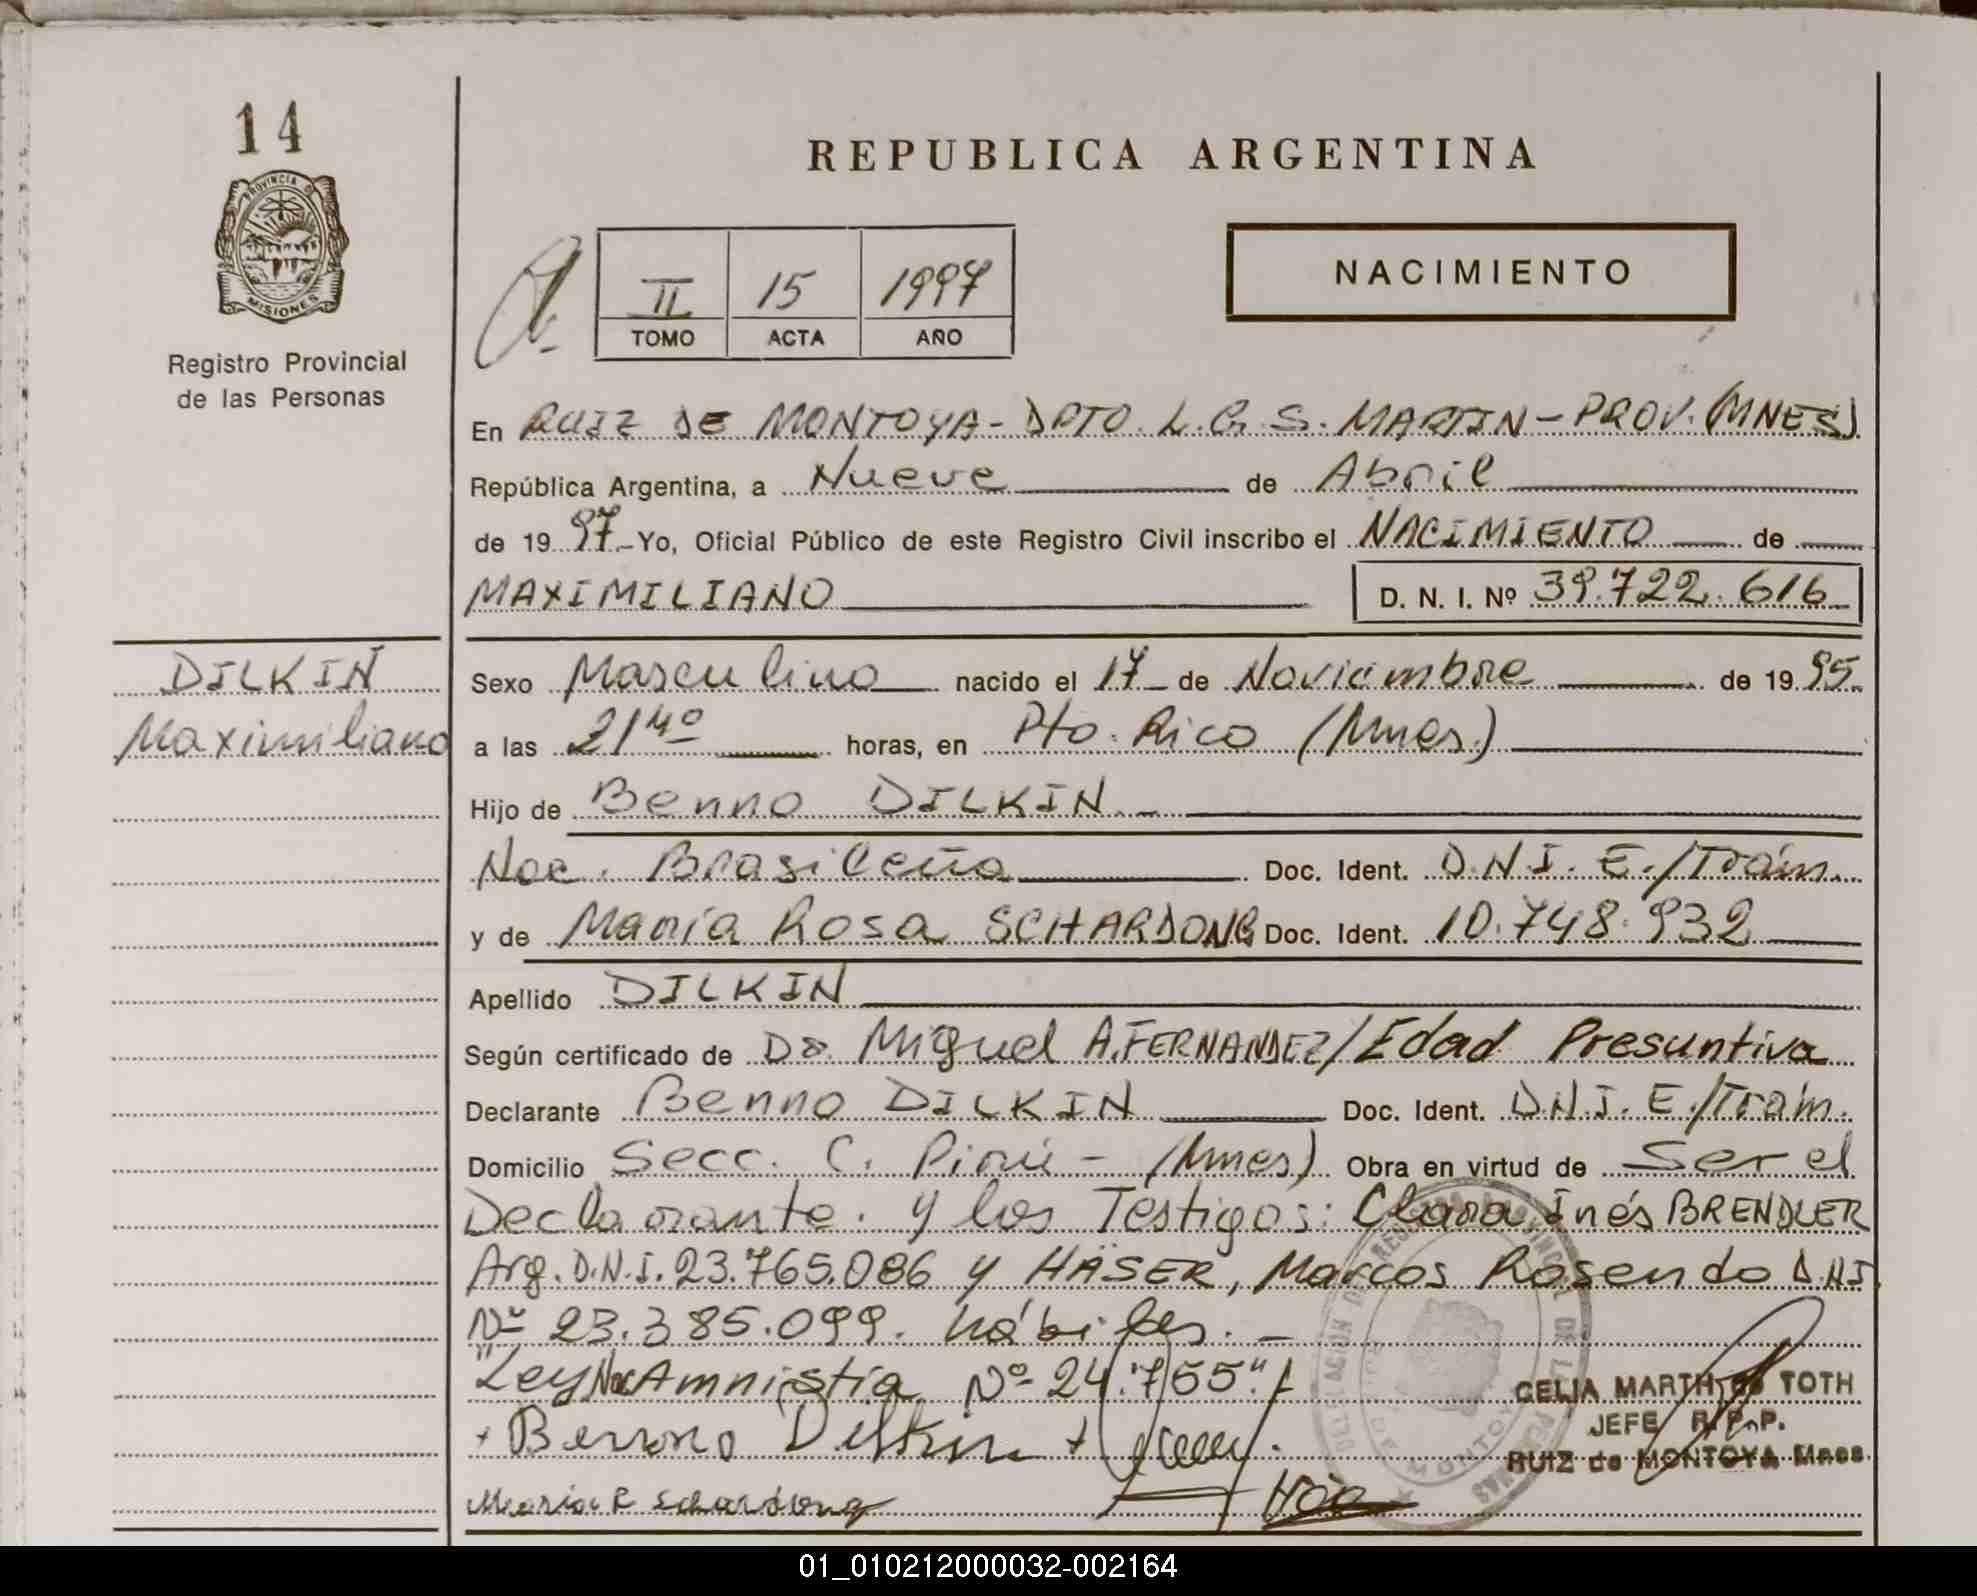 14
PROVINCIA DE
MISIONES
Registro Provincial
de las Personas
REPUBLICA ARGENTINA
II 15 1997
TOMO ACTA AÑO
NACIMIENTO
En RUIZ DE MONTOYA - DPTO. L. G. S. MARTIN - PROV. (MNES)
República Argentina, a Nueve de Abril
de 19 97 - Yo, Oficial Público de este Registro Civil inscribo el NACIMIENTO de
MAXIMILIANO D. N. I. Nº 39.722.616
DILKIN
Maximiliano
Sexo Masculino nacido el 17 de Noviembre de 19 95
a las 21 40 horas, en Pto. Rico (Mnes.)
Hijo de Benno DILKIN.
Nac. Brasileña Doc. Ident. D.N.I. E./Trám.
y de María Rosa SCHARDONG Doc. Ident. 10.748.932
Apellido DILKIN
Según certificado de Dr. Miguel A. FERNANDEZ/Edad Presuntiva
Declarante Benno DILKIN Doc. Ident. D.N.I. E./Trám.
Domicilio Secc. C. Pirú - (Mnes) Obra en virtud de Ser el
Declarante. y los Testigos: Clara Inés BRENDLER
Arg. D.N.I. 23.765.086 y HÄSER, Marcos Rosendo D.N.I.
Nº 23.385.099. hábiles. -
"Ley Amnistía Nº 24.755"
+ Benno Dilkin +
Maria R Schardong
CELIA MARTH de TOTH
JEFE R. P. P.
RUIZ de MONTOYA Mnes
01_010212000032-002164